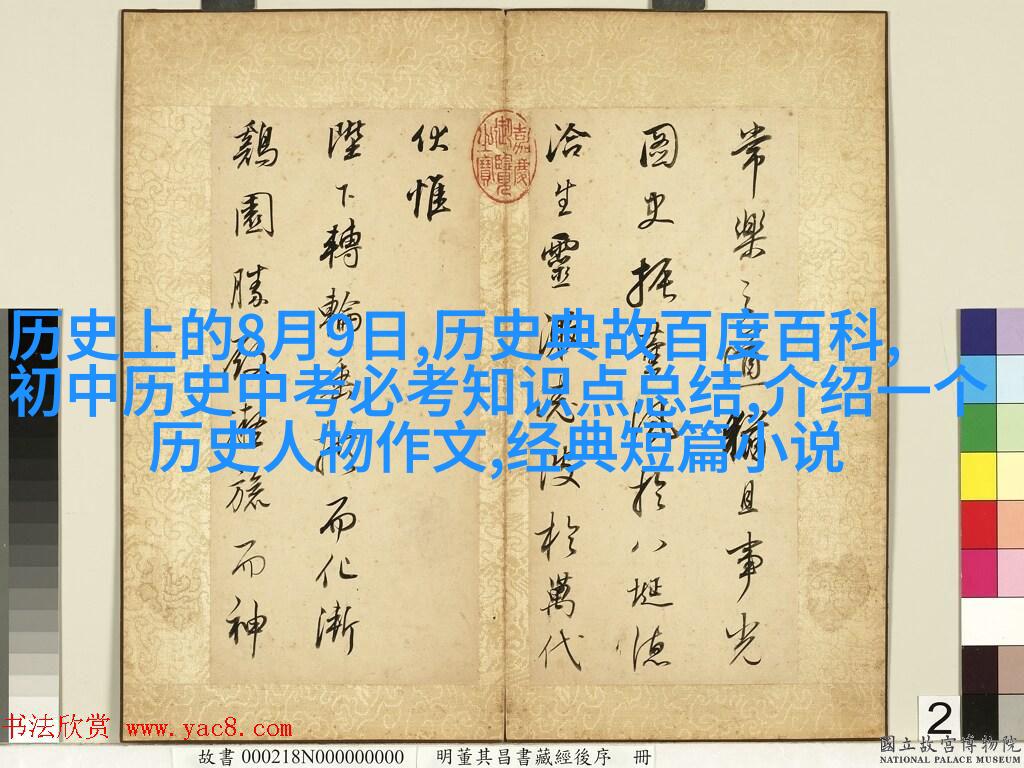 常樂之道猶且事光
圖史振薰風於八埏德
洽生靈於萬代
伏惟
陛下轉輪垂拱而化漸
鷄園勝殿凝旒而神
嘉慶御覽之寶
历史上的8月9日,历史典故百度百科,
初中历史中考必考知识点总结,介绍一个
历史人物作文,经典短篇小说
2
书法欣赏 www.yac8.com
故書 000218N000000000 明董其昌書藏經後序 冊
國立故宮博物院
NATIONAL PALACE MUSEUM